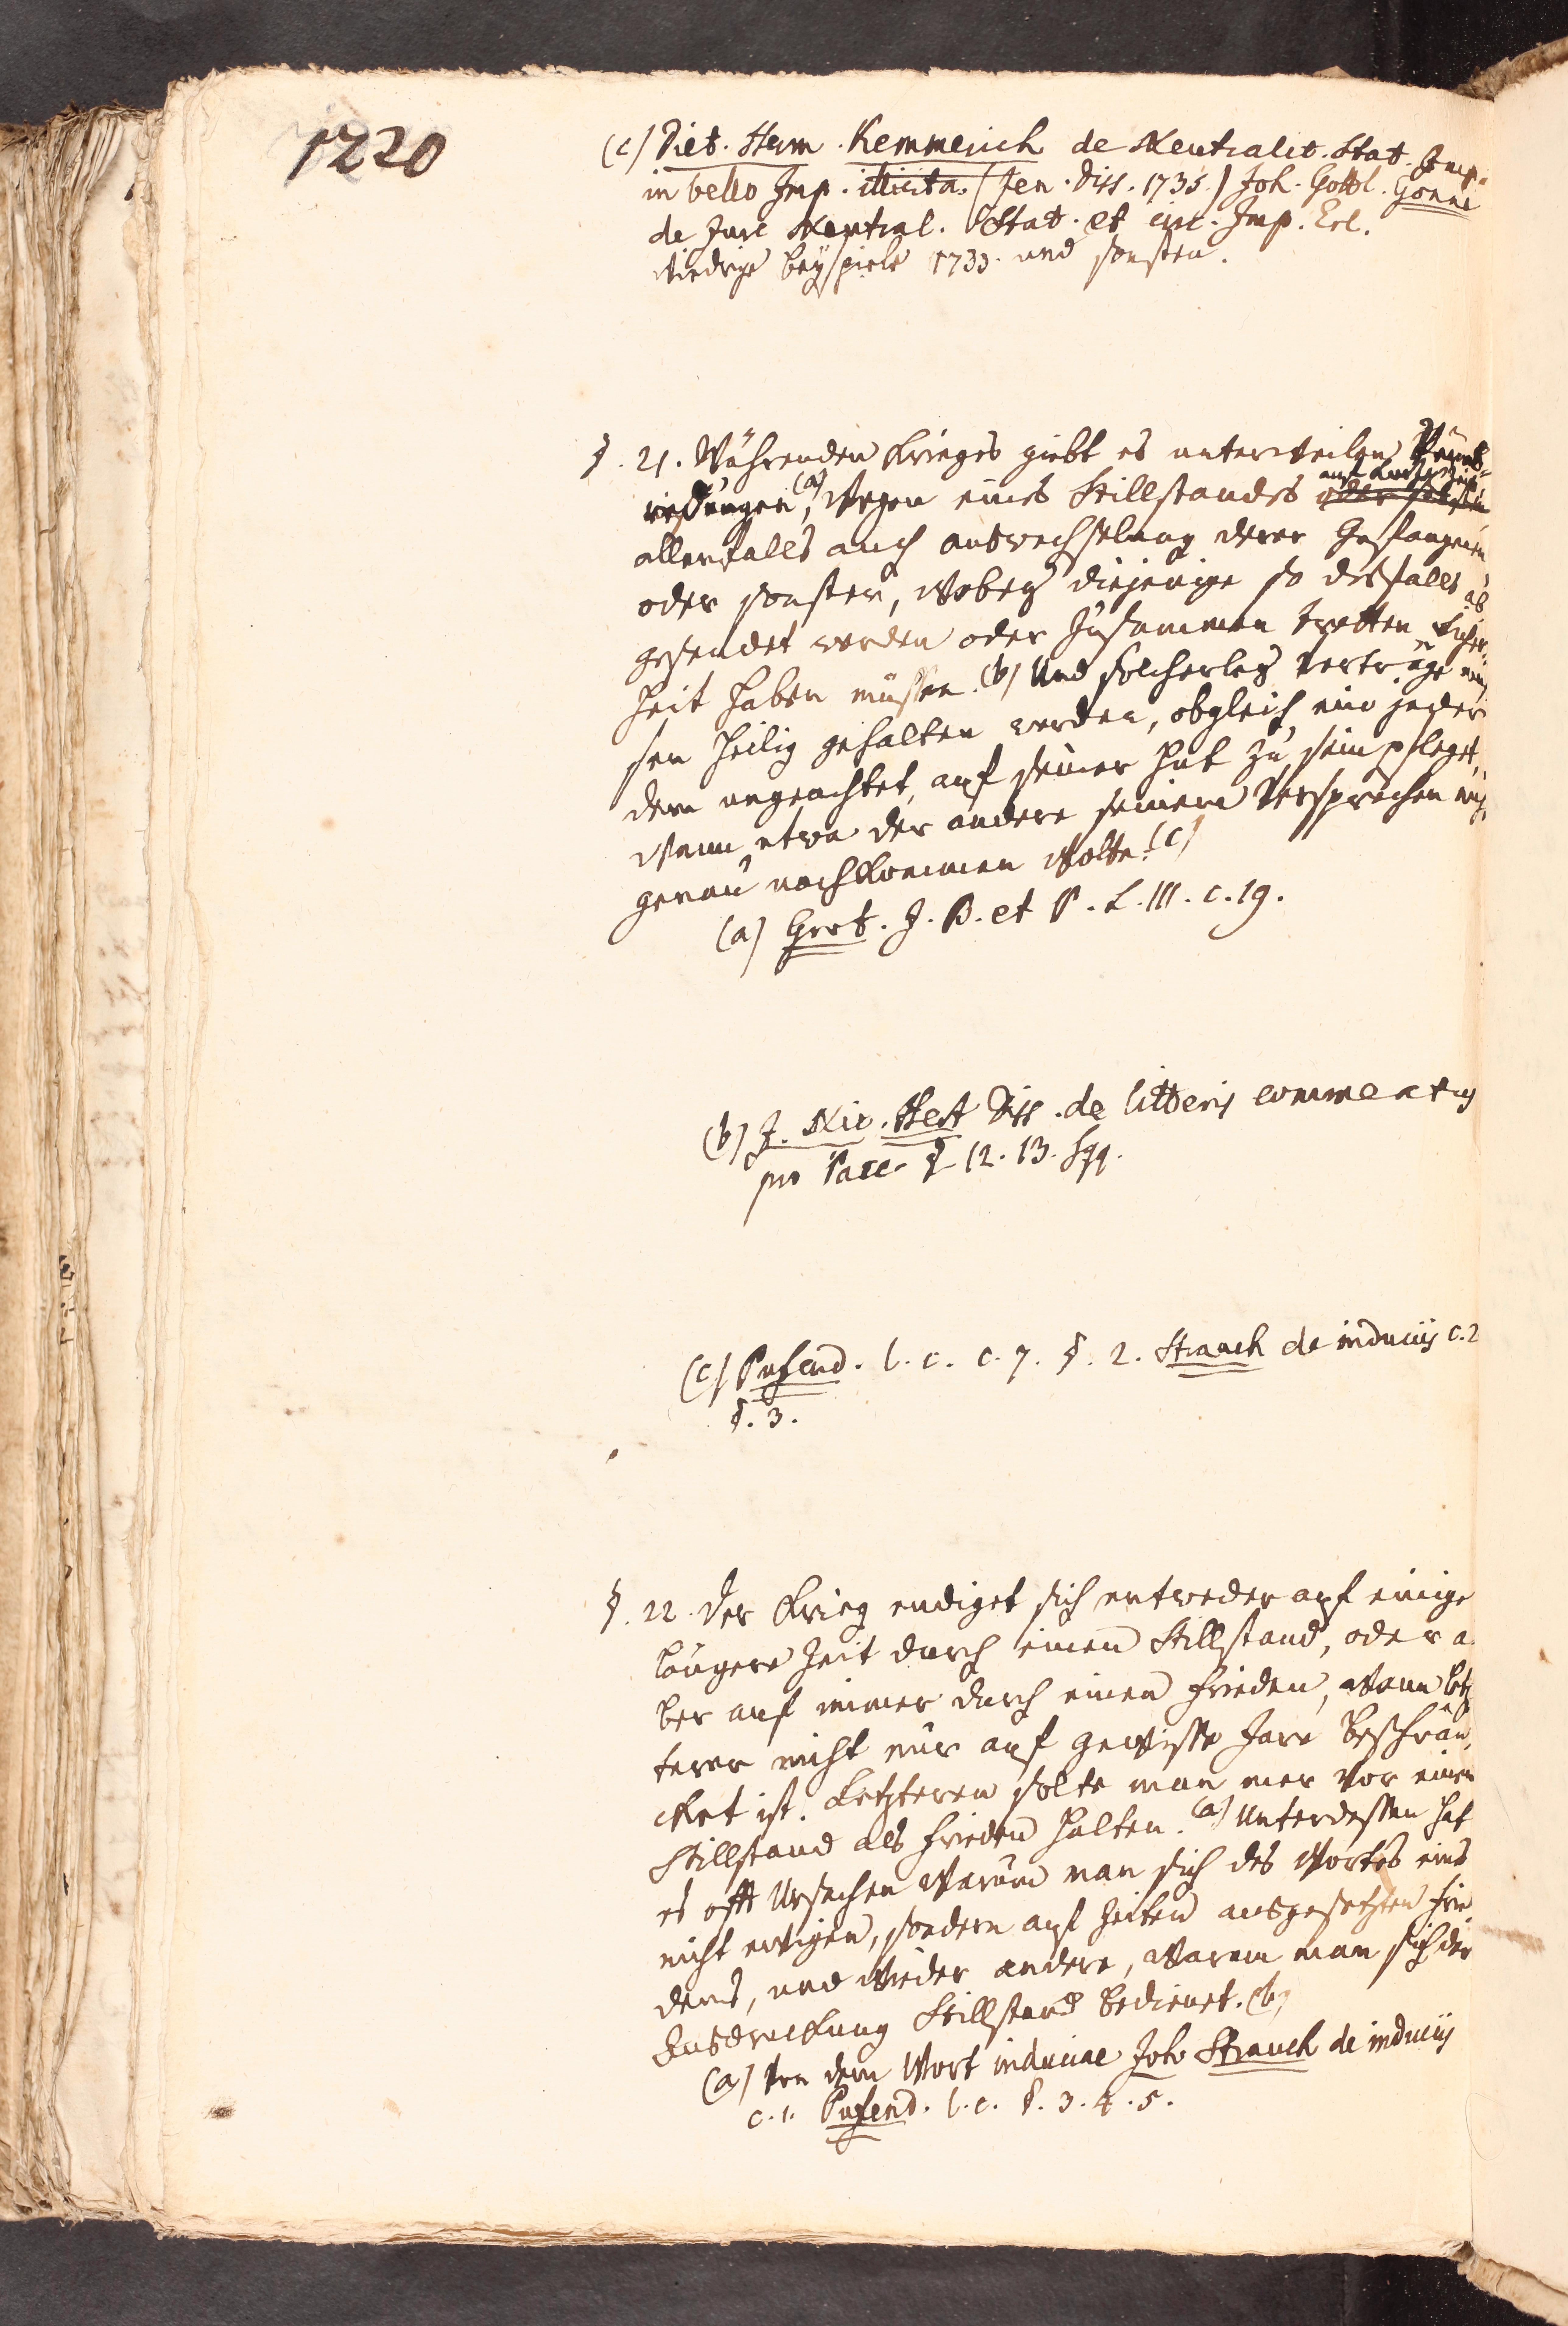 1220
(c) Diet. Herm. Kemmerich de Neutralit. Stat. Imp.
in bello Imp. illicita. (Jen. Diss. 1735.) Joh. Gottl. Gonne
de Jure Neutral. Stat. et circ. Imp. Erl.
Niedrige beyspiele 1733. und sonsten.
§. 21. Währenden Krieges giebt es unterweilen
redungen, (a) Wegen eines Stillstandes
allenfalls auch auswechselung derer Gefangenen
oder sonsten, wobey diejenige so desfalls ab
gesendet werden oder zusammen tretten Sicher-
heit haben müssen. (b) Und solcherley Verträge müs
sen heilig gehalten werden, obgleich ein jeder
dem ungeachtet, auf seiner Hut zu sein pfleget,
wann etwa der andere seinem Versprechen nich
genau nachkommen wolte. (c)
(a) Grot. J. B. et P. L. III. c. 19.
(b) J. Nic. Hert Diss. de litteris commeatus
pro Pace § 12. 13. sqq.
(c) Pufend. l. c. c. 7. §. 2. Strauch de induciis c. 2
§. 3.
§. 22. Der Krieg endiget sich entweder auf einige
längere Zeit durch einen Stillstand, oder a
ber auf immer durch einen Frieden, wann letz
terer nicht nur auf gewisse Jare beschrän
cket ist. Letzteren solte man mer vor einen
Stillstand als Frieden halten. (a) Unterdessen hat
es offt Ursachen warum man sich des Wortes eins
nicht ewigen, sondern auf Zeiten ausgesetzten Frie
dens, und wieder andere, warum man sich der
Ausdruckung Stillstand bedienet. (b)
(a) Von dem Wort induciae Joh. Strauch de induciis
c. 1. Pufend. l. c. §. 3. 4. 5.